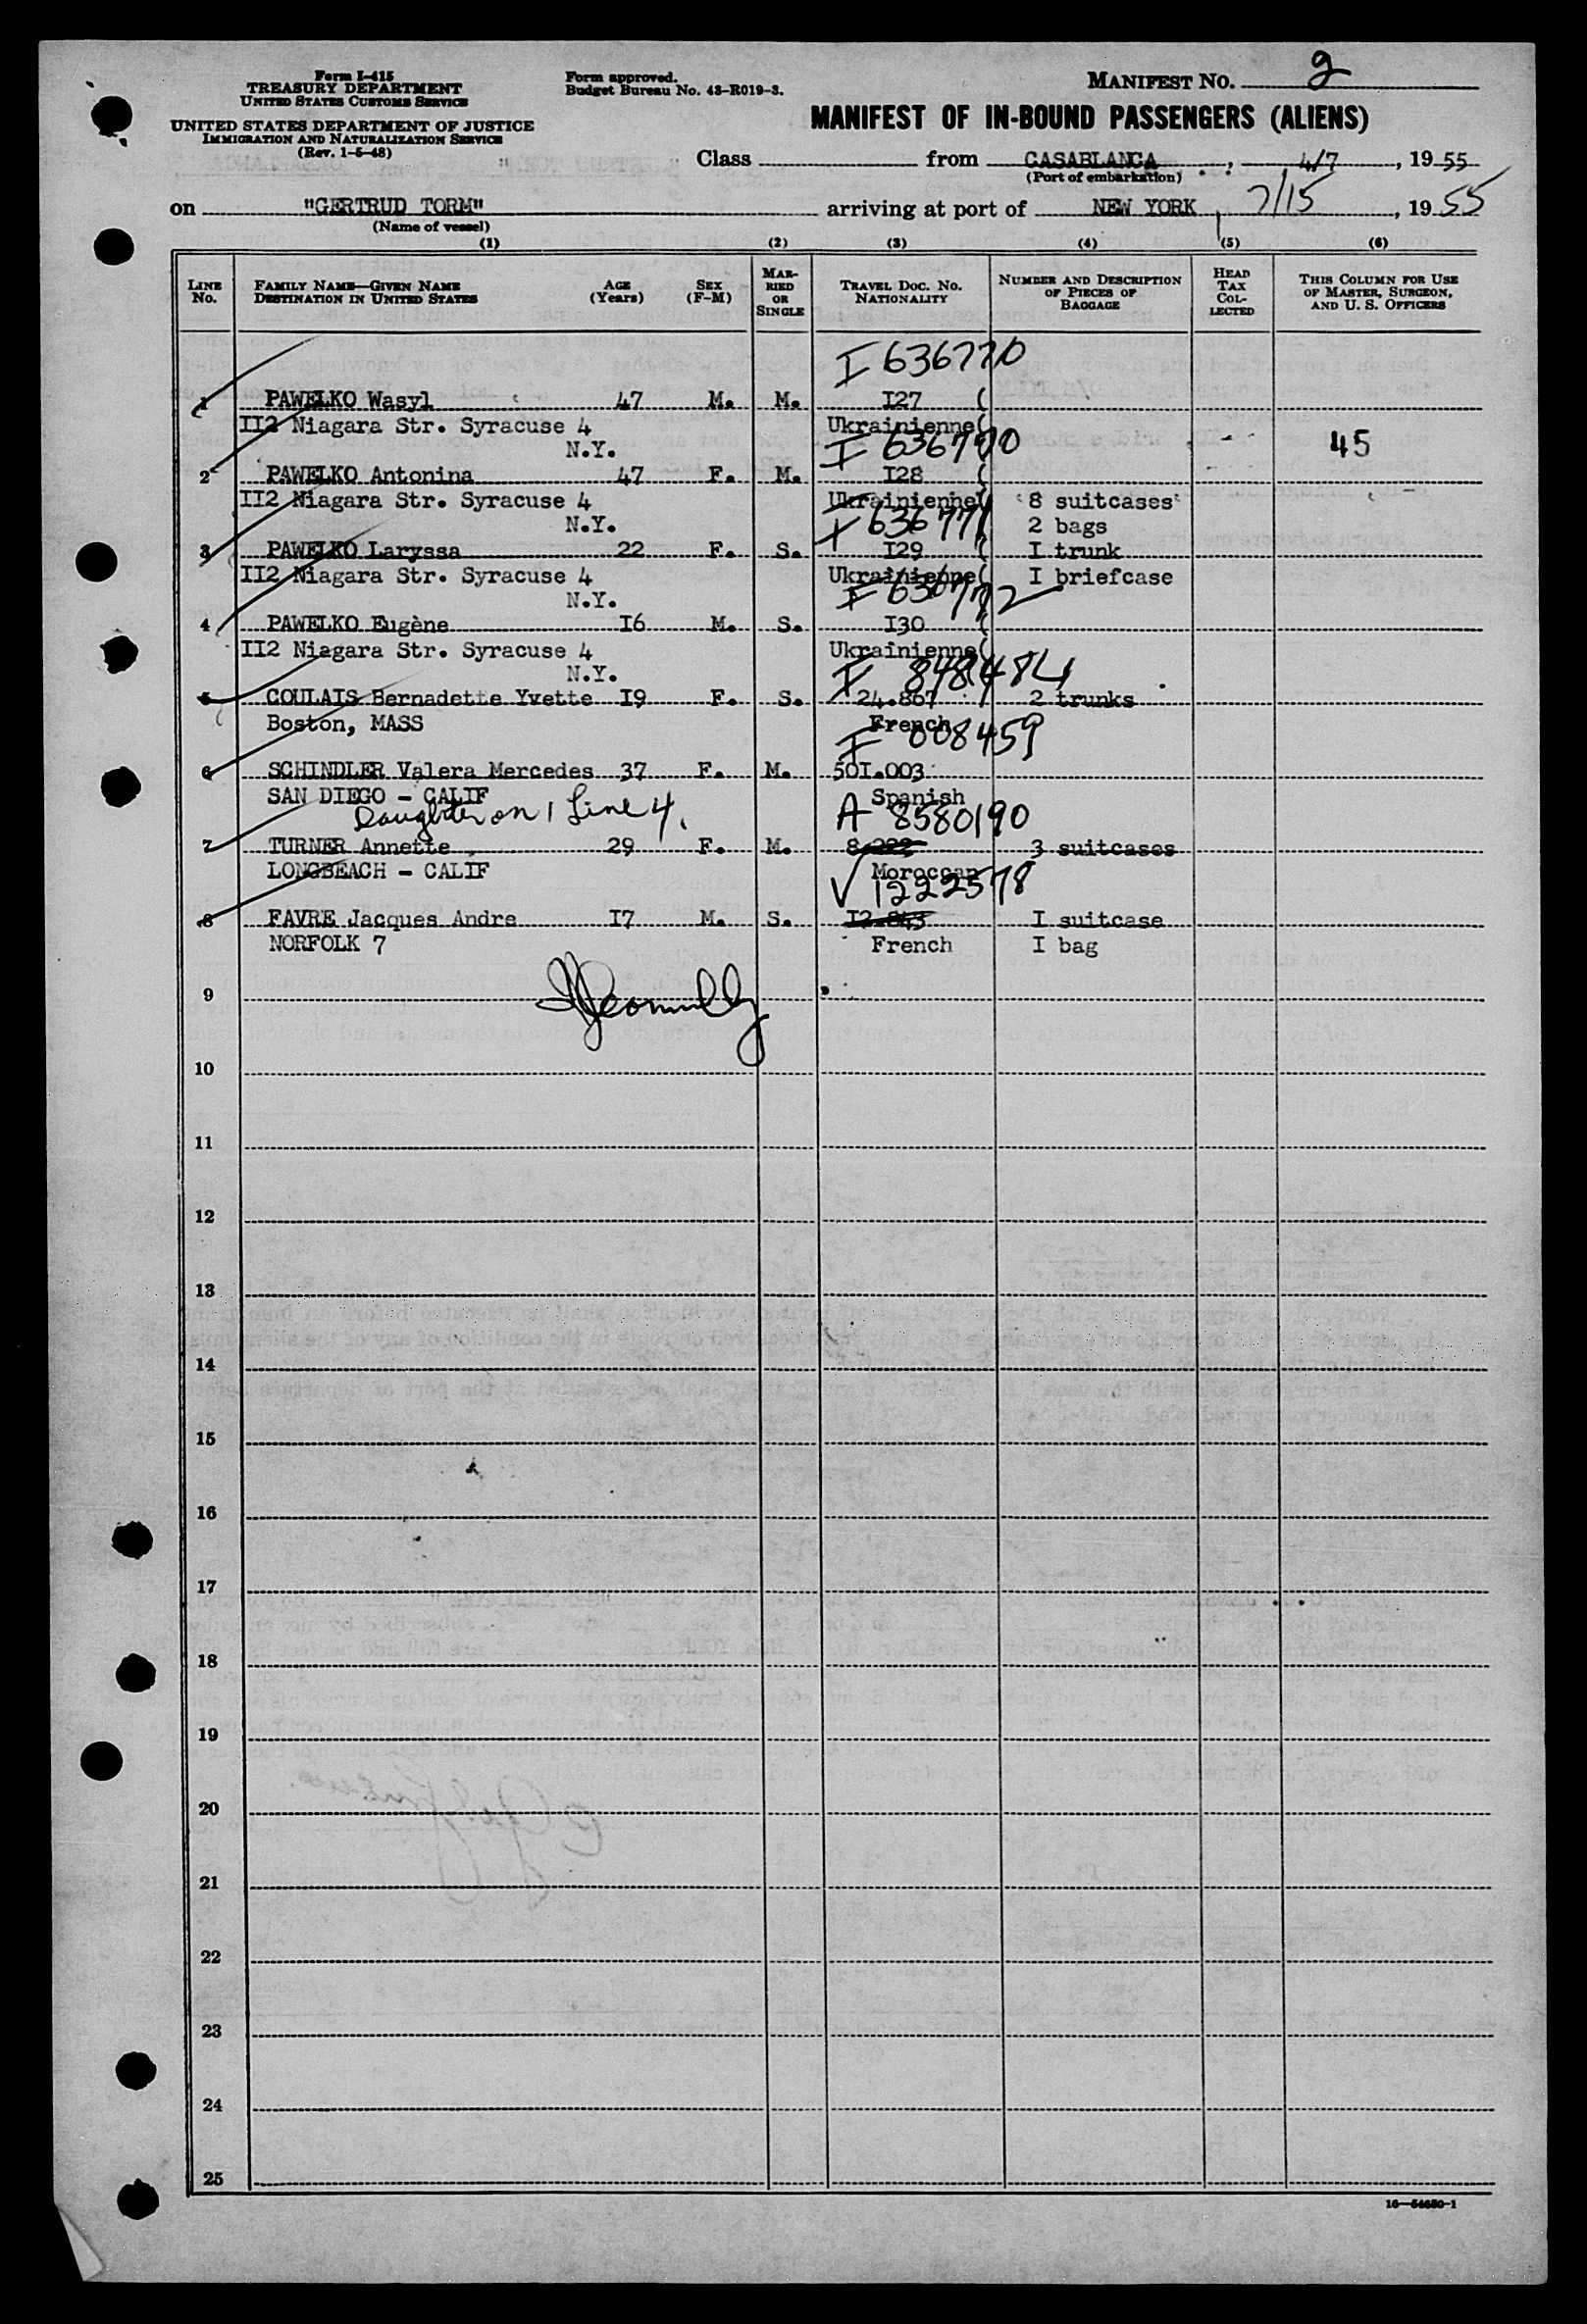 Form I-415
TREASURY DEPARTMENT
UNITED STATES CUSTOMS SERVICE
UNITED STATES DEPARTMENT OF JUSTICE
IMMIGRATION AND NATURALIZATION SERVICE
(Rev. 1-5-48)
Form approved.
Budget Bureau No. 43-R019-3.
MANIFEST NO. 2
MANIFEST OF IN-BOUND PASSENGERS (ALIENS)
Class from CASABLANCA, 4/7, 1955
(Port of embarkation)
on "GERTRUD TORM" arriving at port of NEW YORK, 7/15, 1955
(Name of vessel)
(1) (2) (3) (4) (5) (6)
LINE No. FAMILY NAME—GIVEN NAME DESTINATION IN UNITED STATES AGE (Years) SEX (F-M) MARRIED OR SINGLE TRAVEL DOC. NO. NATIONALITY NUMBER AND DESCRIPTION OF PIECES OF BAGGAGE HEAD TAX COLLECTED THIS COLUMN FOR USE OF MASTER, SURGEON, AND U. S. OFFICERS
I 636770
1 PAWELKO Wasyl 47 M. M. I27 (
II2 Niagara Str. Syracuse 4 Ukrainienne(
N.Y. I 636770 45
2 PAWELKO Antonina 47 F. M. I28 (
II2 Niagara Str. Syracuse 4 Ukrainienne( 8 suitcases
N.Y. I 636771 2 bags
3 PAWELKO Laryssa 22 F. S. I29 ( I trunk
II2 Niagara Str. Syracuse 4 Ukrainienne( I briefcase
N.Y. I 636772
4 PAWELKO Eugène I6 M. S. I30 (
II2 Niagara Str. Syracuse 4 Ukrainienne(
N.Y. I 848484
5 COULAIS Bernadette Yvette I9 F. S. 24.867 2 trunks
Boston, MASS French
I 008459
6 SCHINDLER Valera Mercedes 37 F. M. 50I.003
SAN DIEGO - CALIF Spanish
Daughter on 1 Line 4. A 8580190
7 TURNER Annette 29 F. M. 8.222 3 suitcases
LONGBEACH - CALIF Moroccan
V 1222578
8 FAVRE Jacques Andre I7 M. S. I2.843 I suitcase
NORFOLK 7 French I bag
9
10
11
12
13
14
15
16
17
18
19
20
21
22
23
24
25
16—54650-1